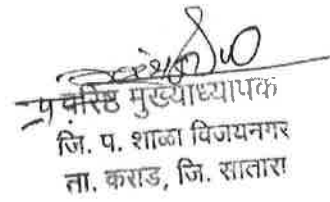 प्र वरिष्ठ मुख्याध्यापक
जि. प. शाळा विजयनगर
ता. कराड, जि. सातारा